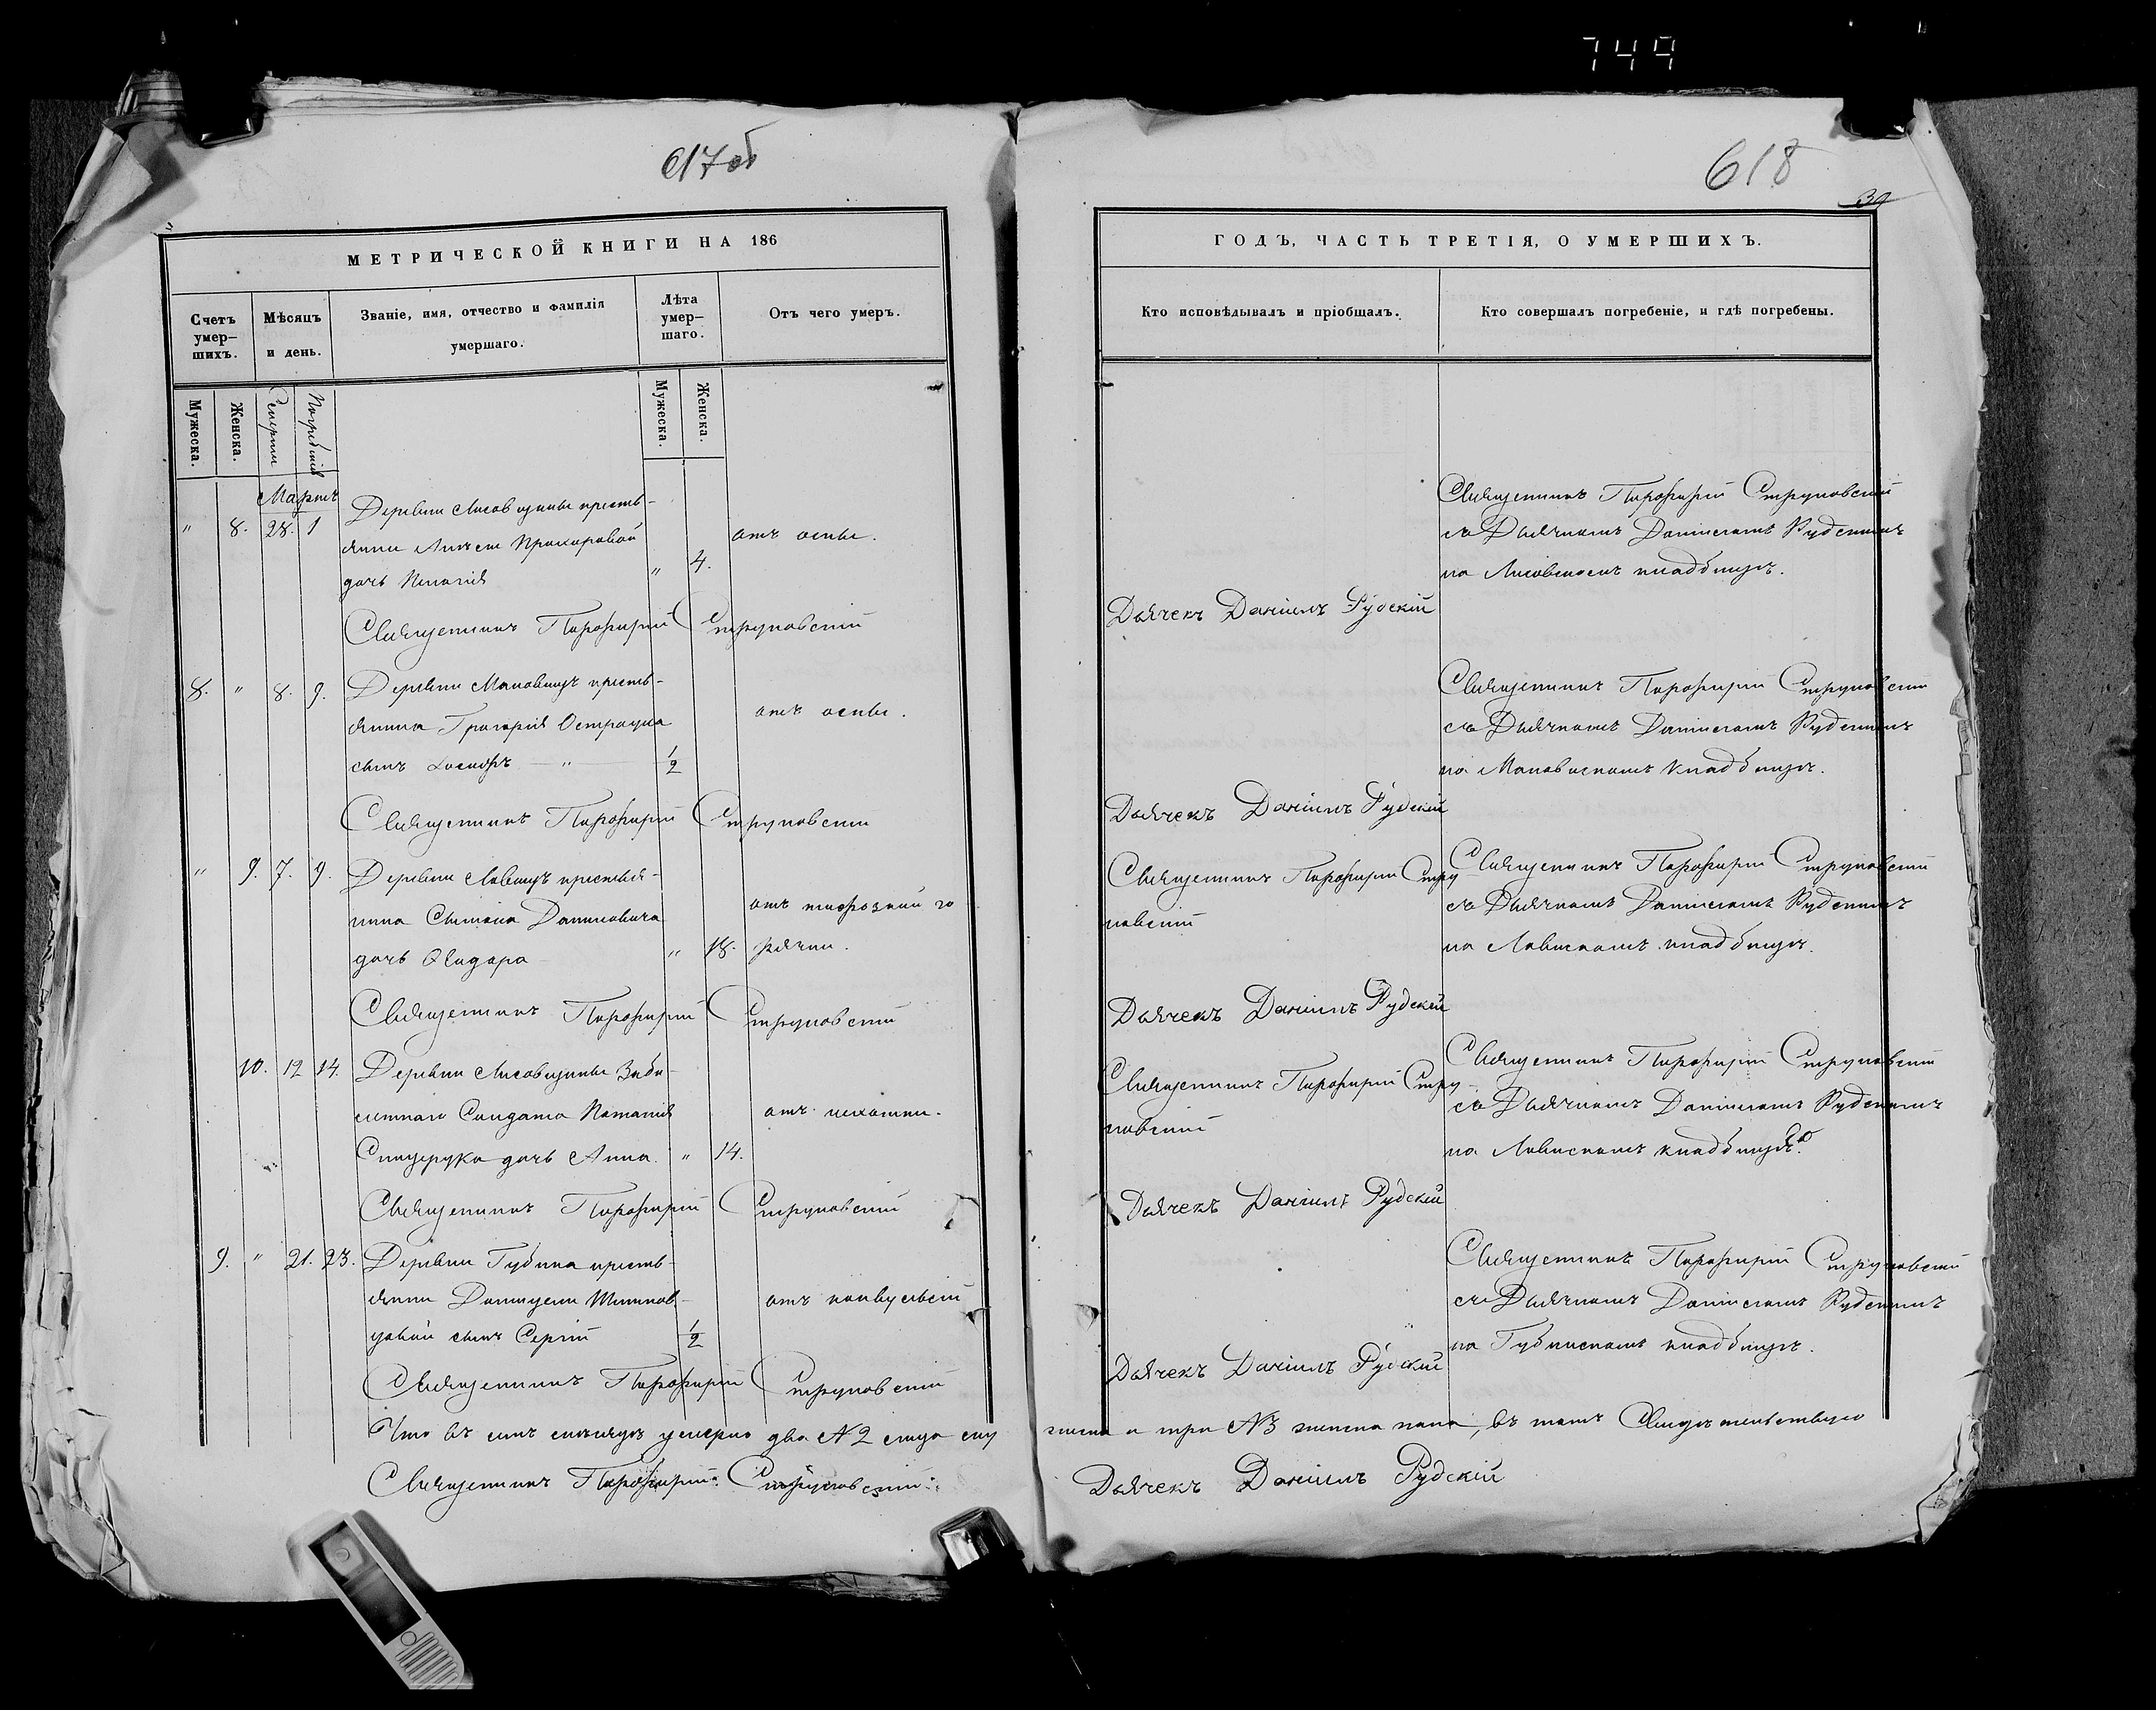 749
617 об
МЕТРИЧЕСКОЙ КНИГИ НА 186
Счетъ умер-
шихъ.
Мѣсяцъ
и день.
Званіе, имя, отчество и фамилія
умершаго.
Лѣта
умер-
шаго.
Отъ чего умеръ.
Мужеска.
Женска.
Смерти
Погребенія
Мужеска.
Женска.
Мартъ
" 8. 28. 1 Деревни Лисовщины кресть-
янки Прохоровой " 4. отъ оспы.
дочь
Священникъ Порфирій Струковскій
8. " 8. 9. Деревни кресть-
янина Григорія Остраука отъ оспы.
сынъ Іосифъ — " — 1/2
Священникъ Порфирій Струковскій
" 9. 7. 9. Деревни кресть-
нина Даниловича отъ тифозной го
дочь " 18. рячки.
Священникъ Порфирій Струковскій
10. 12 14. Деревни Лисовщины
Солдата отъ чахотки.
дочь Анна. " 14.
Священникъ Порфирій Струковскій
9. " 21. 23. Деревни Губина кресть-
янки отъ конвульсій
сынъ Сергій 1/2
Священникъ Порфирій Струковскій
Что въ семъ мѣсяцѣ умерло два № 2 мужска
Священникъ Порфирій Струковскій
618
39
ГОДЪ, ЧАСТЬ ТРЕТІЯ, О УМЕРШИХЪ.
Кто исповѣдывалъ и пріобщалъ.
Кто совершалъ погребеніе, и гдѣ погребены.
Священникъ Порфирій Струковскій
съ Дьячкомъ Даніиломъ Рудскимъ
на Лисовскомъ кладбищѣ.
Дьячекъ Даніилъ Рудскій
Священникъ Порфирій Струковскій
съ Дьячкомъ Даніиломъ Рудскимъ
на кладбищѣ.
Дьячекъ Даніилъ Рудскій
Священникъ Порфирій Стру-
ковскій
Священникъ Порфирій Струковскій
съ Дьячкомъ Даніиломъ Рудскимъ
на кладбищѣ.
Дьячекъ Даніилъ Рудскій
Священникъ Порфирій Стру-
ковскій
Священникъ Порфирій Струковскій
съ Дьячкомъ Даніиломъ Рудскимъ
на кладбищѣ.
Дьячекъ Даніилъ Рудскій
Священникъ Порфирій Струковскій
съ Дьячкомъ Даніиломъ Рудскимъ
на Губинскомъ кладбищѣ.
Дьячекъ Даніилъ Рудскій
и три № 3 женска пола, въ томъ Свидѣтельствую
Дьячекъ Даніилъ Рудскій